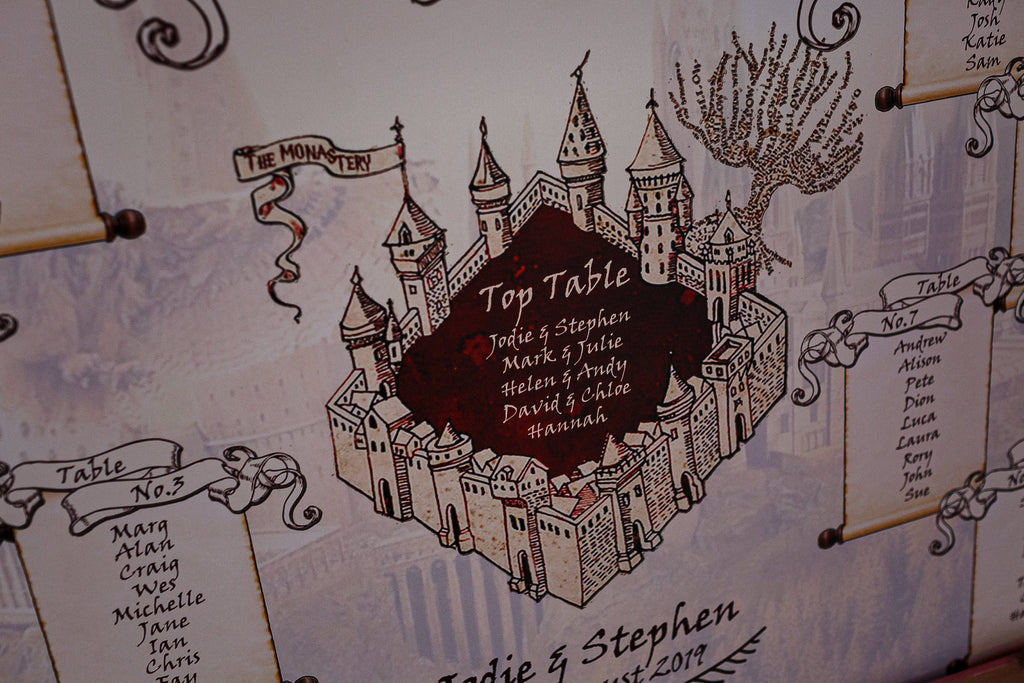 Josh
Katie
Sam
THE MONASTERY
Top Table
Jodie & Stephen
Mark & Julie
Helen & Andy
David & Chloe
Hannah
Table
No.7
Andrew
Alison
Pete
Dion
Luca
Laura
Rory
John
Sue
Table
No.3
Marg
Alan
Craig
Wes
Michelle
Jane
Ian
Chris
Jodie & Stephen
2019